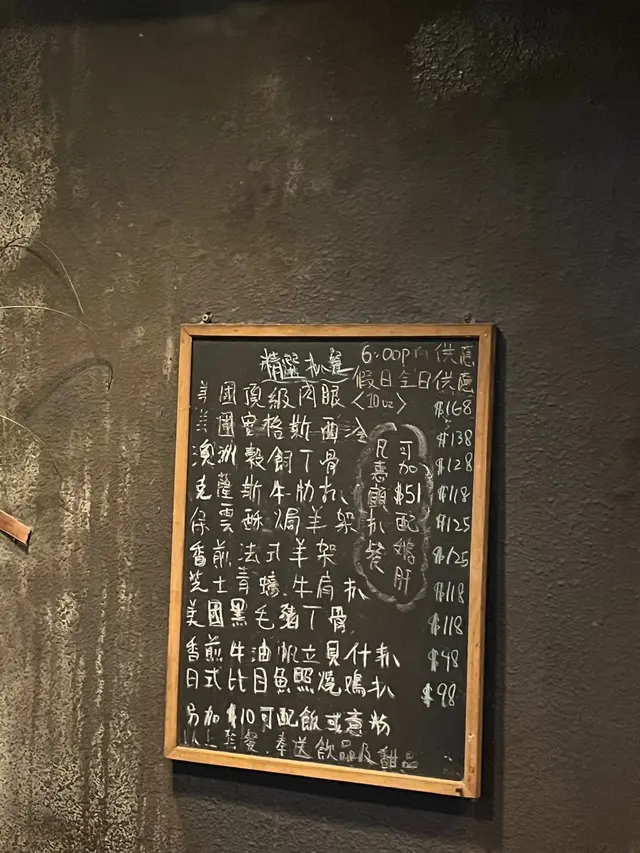 精選扒餐 6:00pm 供應
假日全日供應
美國頂級肉眼 <10oz> $168
美國安格斯西冷 $138
澳洲穀飼丁骨 $128
克薩斯牛肋扒 $118
保雲酥焗羊架 $125
香煎法式羊架 $125
芝士青蠔牛肩扒 $118
美國黑毛豬丁骨 $118
香煎牛油帆立貝什扒 $48
日式比目魚照燒鷄扒 $98
凡惠顧扒餐
可加$51配鵝肝
另加$10可配飯或意粉
以上套餐奉送飲品及甜品